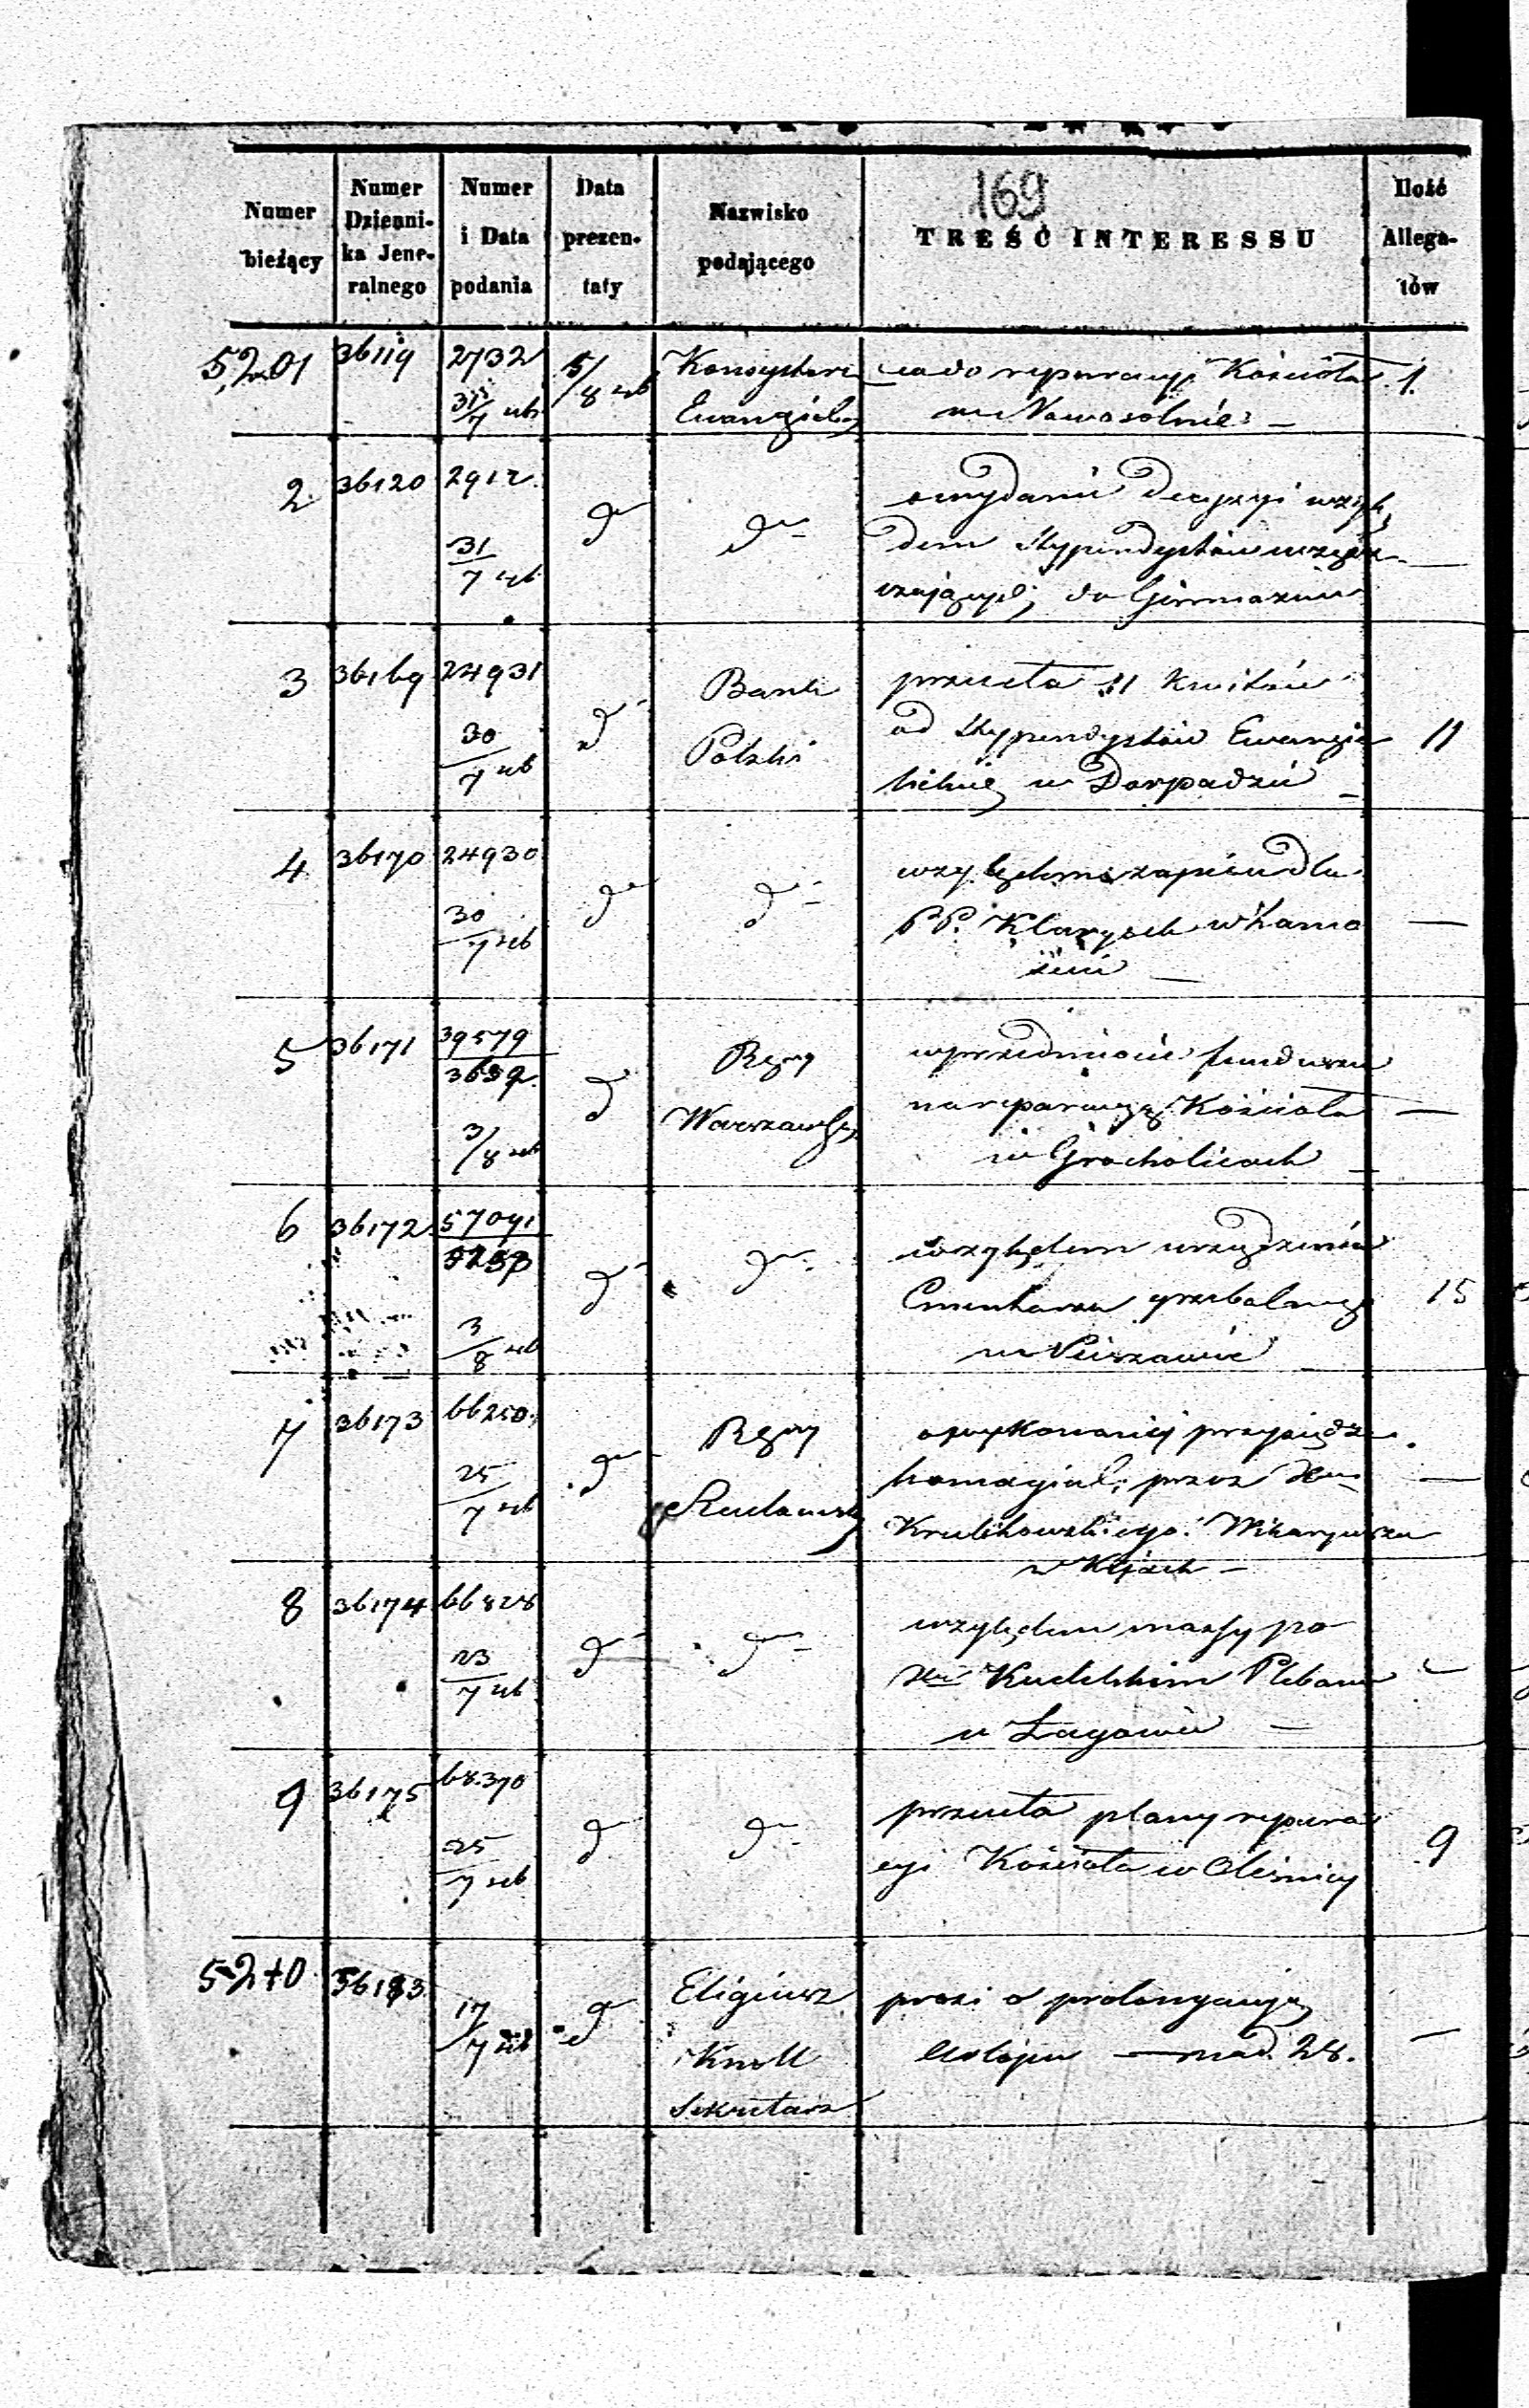 169
Numer bieżący
Numer Dzienni-ka Jene-ralnego
Numer i Data podania
Data prezen-taty
Nazwisko podającego
TREŚĆ INTERESSU
Ilość Allega-tów
5,201 36119 2732 31/7 5/8 Konsystorz Ewangielic co do reperacyi Kościoła 1.
w Nowosolnie
2 36120 2912 31/7 do do o wydanie decyzyi wzglę
dem Stypendystów uczęsz
czających do Gimnazium —
3 36169 24931 30/7 do Bank Polski przesyła 11 kwitów
od Stypendystów Ewangie
lickich w Dorpadzie 11
4 36170 24930 30/7 do do względem zapisu dla
PP. Klarysek w Zamo
ściu —
5 36171 39579/3659 3/8 do Rząd Warszawski w przedmiocie funduszu
na reparacyę Kościoła
w Grocholicach —
6 36172 57091 3/8 do do względem urządzenia
Cmentarza grzebalnego
w Nieszawie 15
7 36173 66250 25/7 do Rząd Radomski o wykonaniej przysiędze
homagial. przez Xa
Krulikowskiego Wikaryusza
w Kijach —
8 36174 66828 23/7 do do względem massy po
Xu Kudelskim Plebanie
w Łagowie —
9 36175 68370 25/7 do do przesyła plany repera
cyi Kościoła w Oleśnicy 9
5210 36183 17/7 do Eligiusz Knoll Sekretarz prosi o prolongacyę
Urlopu — na d. 28. —